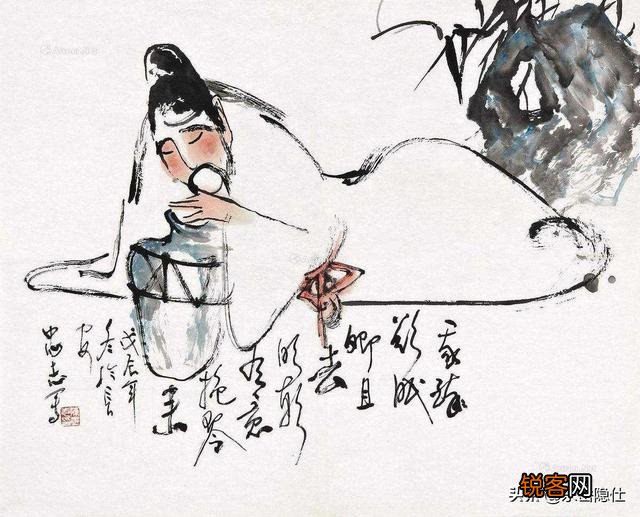 我醉
欲眠
卿且
去
明朝
有意
抱琴
来
戊辰年
冬於長
安
忠志寫
锐客网
隐仕